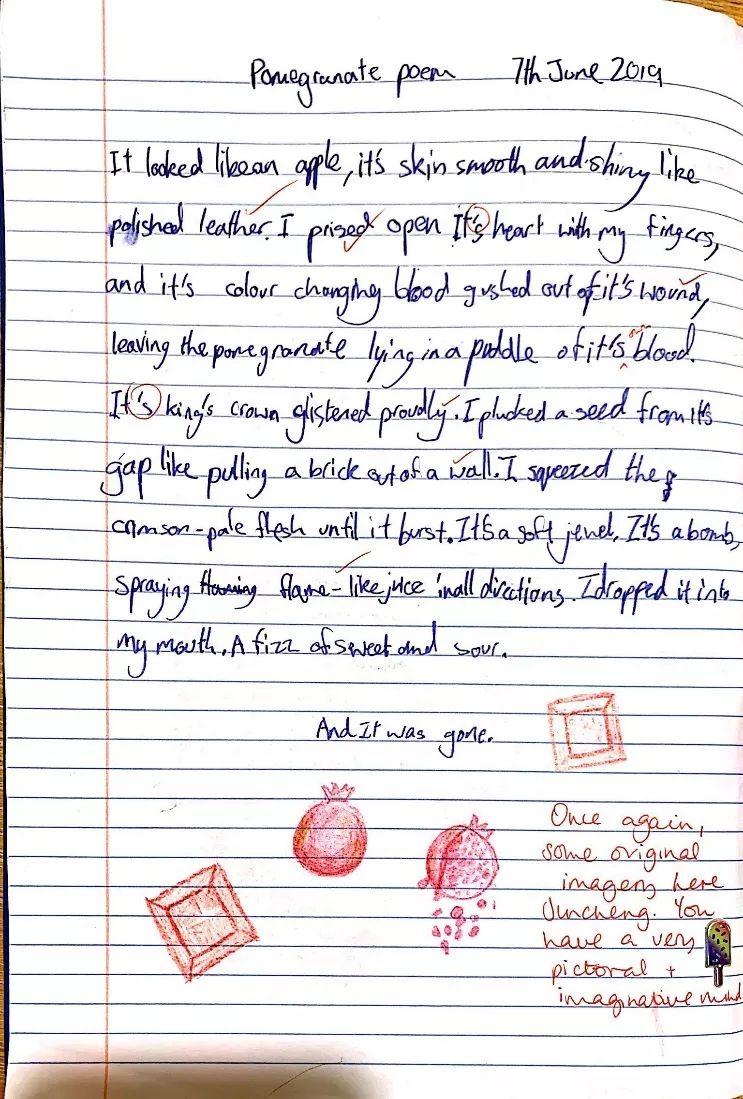 Pomegranate poem 7th June 2019
It looked like an apple, it's skin smooth and shiny like
polished leather. I prized open It's heart with my fingers,
and it's colour changing blood gushed out of it's wound,
leaving the pomegranate lying in a puddle of it's blood.
It's king's crown glistened proudly. I plucked a seed from it's
gap like pulling a brick out of a wall. I squeezed the
crimson-pale flesh until it burst. It's a soft jewel. It's a bomb,
spraying flame-like juice in all directions. I dropped it into
my mouth. A fizz of sweet and sour.
And It was gone.
Once again,
some original
imagery here
Juncheng. You
have a very
pictoral +
imaginative mind